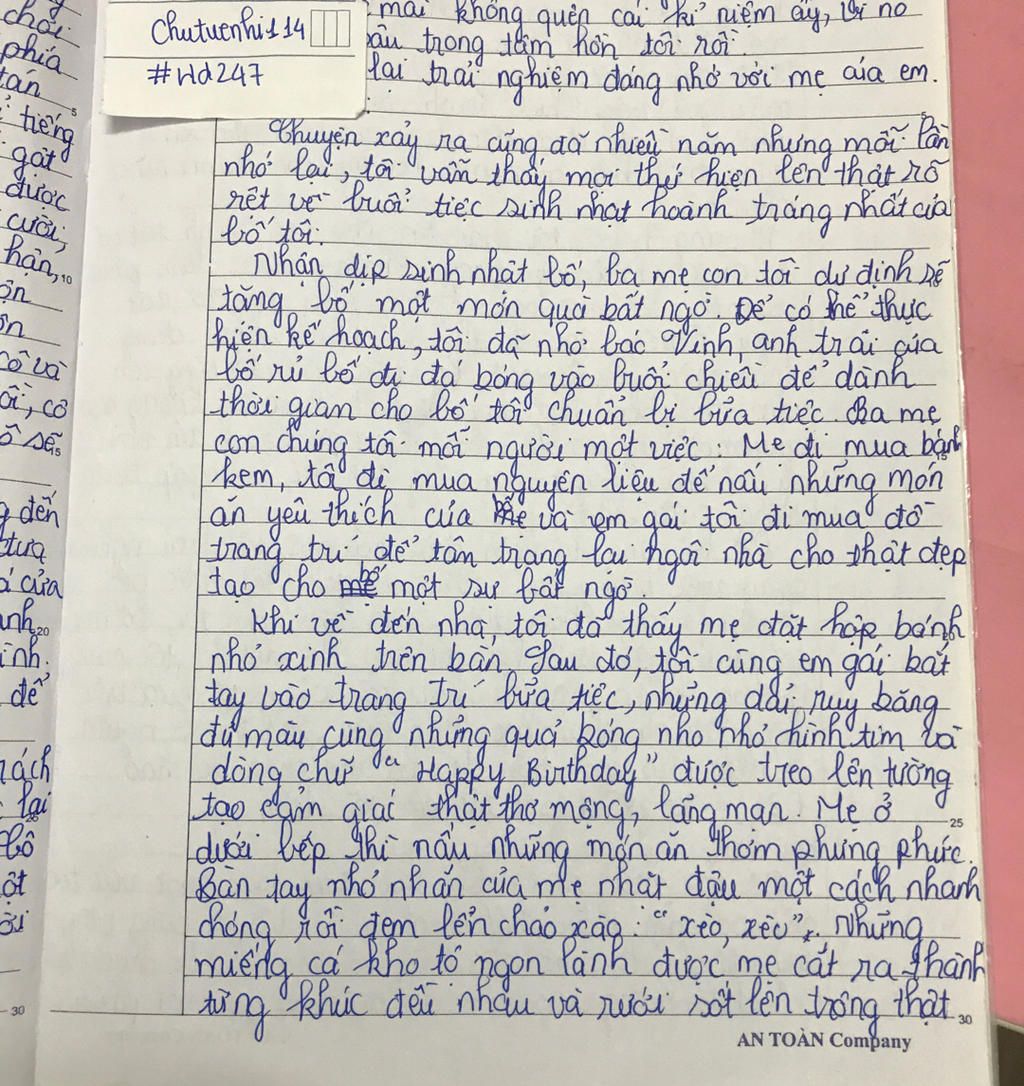 chutuenhi114
#Wd247
mãi không quên cái kỉ niệm ấy, vì nó
sâu trong tâm hồn tôi rồi.
lại trải nghiệm đáng nhớ với mẹ của em.
Chuyện xảy ra cũng đã nhiều năm nhưng mỗi lần
nhớ lại, tôi vẫn thấy mọi thứ hiện lên thật rõ
rệt về buổi tiệc sinh nhật hoành tráng nhất của
bố tôi.
Nhân dịp sinh nhật bố, ba mẹ con tôi dự định sẽ
tặng bố một món quà bất ngờ. Để có thể thực
hiện kế hoạch, tôi đã nhờ bác Vinh, anh trai của
bố rủ bố đi đá bóng vào buổi chiều để dành
thời gian cho bố tôi chuẩn bị bữa tiệc. Ba mẹ
con chúng tôi mỗi người một việc: Mẹ đi mua bánh
kem, tôi đi mua nguyên liệu để nấu những món
ăn yêu thích của mẹ và em gái tôi đi mua đồ
trang trí để tân trang lại ngôi nhà cho thật đẹp
tạo cho bố một sự bất ngờ.
Khi về đến nhà, tôi đã thấy mẹ đặt hộp bánh
nhỏ xinh trên bàn. Sau đó, tôi cùng em gái bắt
tay vào trang trí bữa tiệc, những dải ruy băng
đủ màu cùng những quả bóng nho nhỏ hình tim và
dòng chữ "Happy Birthday" được treo lên tường
tạo cảm giác thật thơ mộng, lãng mạn. Mẹ ở
dưới bếp thì nấu những món ăn thơm phưng phức.
Bàn tay nhỏ nhắn của mẹ nhặt đậu một cách nhanh
chóng rồi đem lên chảo xào: "xèo, xèo". Những
miếng cá kho tộ ngon lành được mẹ cắt ra thành
từng khúc đều nhau và rưới sốt lên trông thật
5
chối
phía
tán
tiếng
gật
được
cười,
hận,
10
cô và
ồi, cô
ô sẽ
15
g đến
tựa
á cửa
anh
20
ình.
để
rách
lại
25
bố
ột
30
25
30
AN TOÀN Company